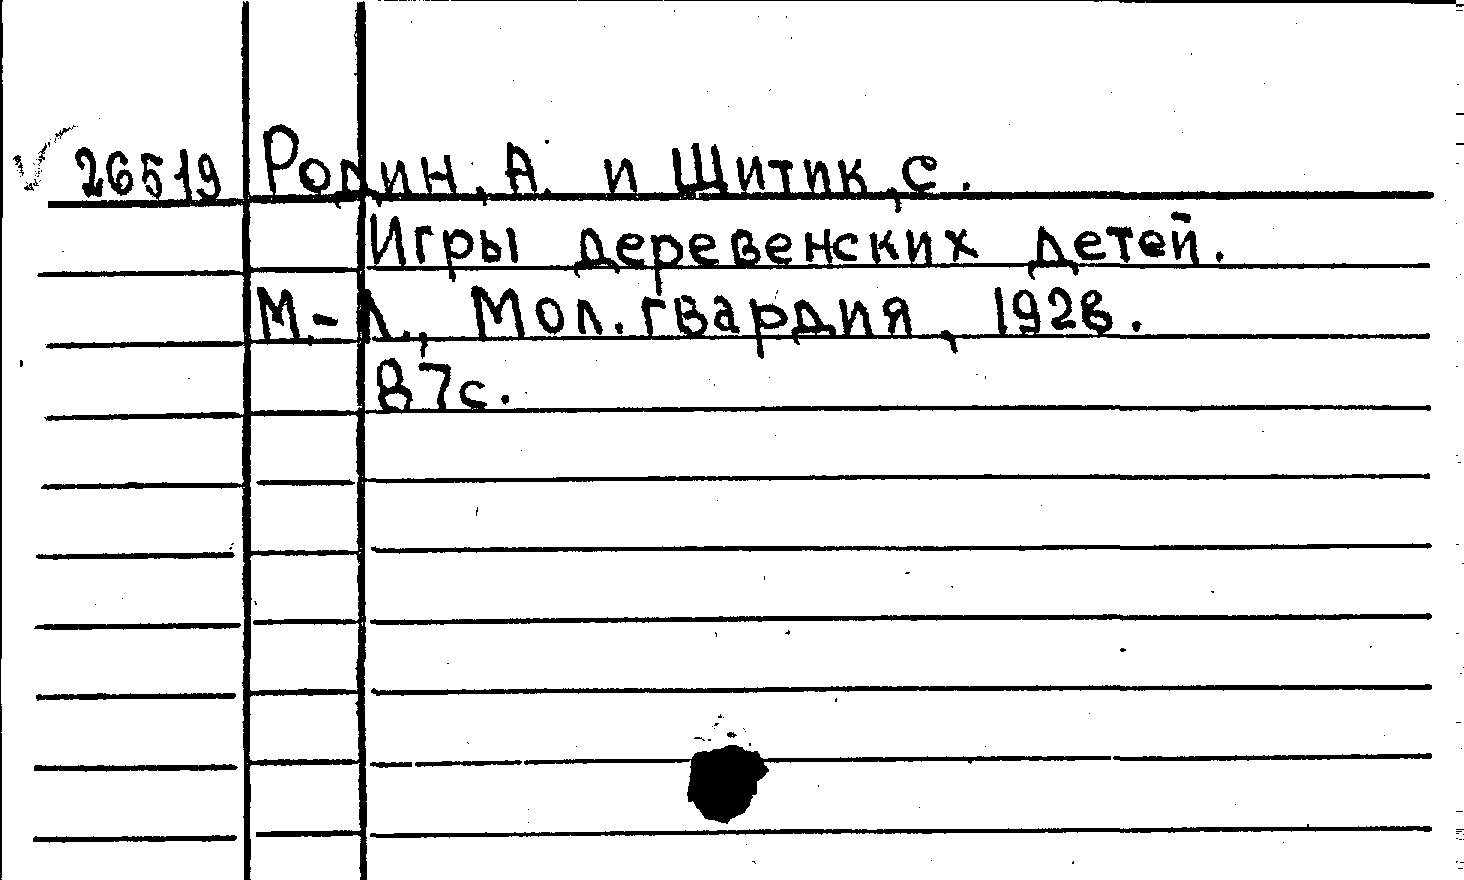 26519 Родин, А. и Щитик, С.
Игры деревенских детей.
М.-Л., Мол. гвардия, 1928.
87с.